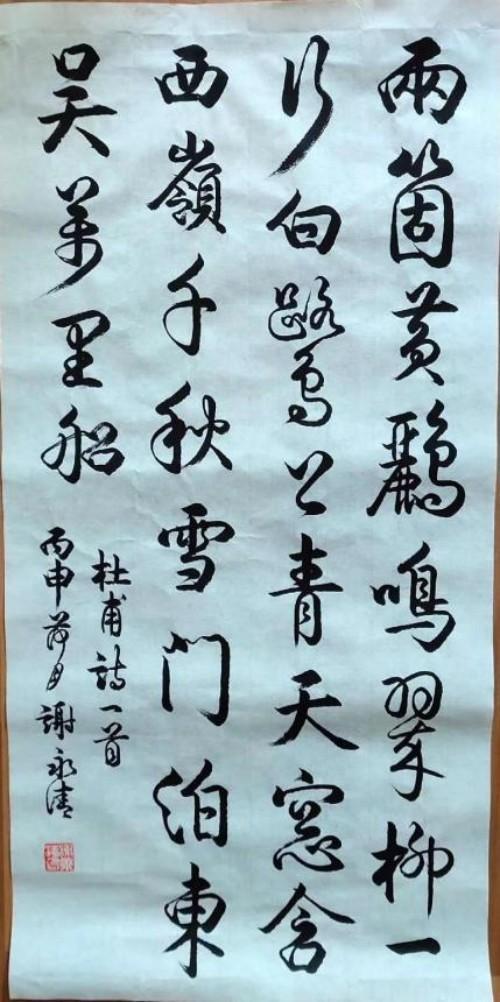 兩箇黃鸝鳴翠柳一
行白鷺上青天窓含
西嶺千秋雪門泊東
吳萬里船
杜甫詩一首
丙申荷月謝永清